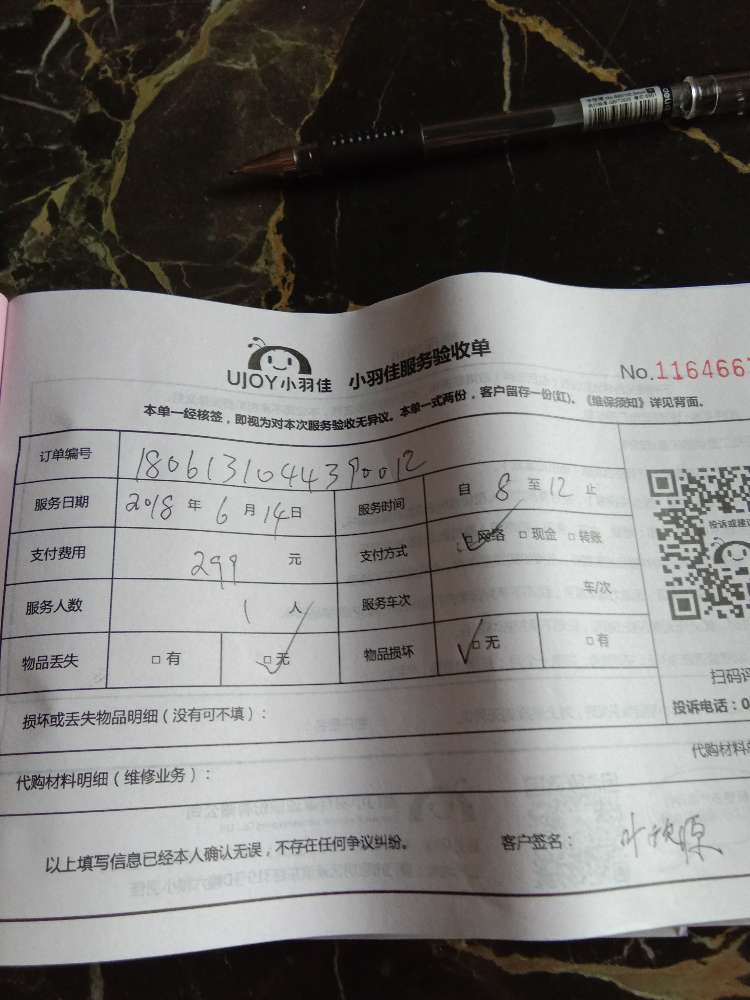 UJOY小羽佳 小羽佳服务验收单
No.116466
本单一经核签，即视为对本次服务验收无异议。本单一式两份，客户留存一份(红)。《维保须知》详见背面。
订单编号 1806131044390012
服务日期 2018 年 6 月 14 日 服务时间 自 8 至 12 止
投诉或建议
支付费用 299 元 支付方式 □网络 □现金 □转账
服务人数 1 人 服务车次 车/次
物品丢失 □有 □无 物品损坏 □无 □有
扫码评
损坏或丢失物品明细（没有可不填）：
投诉电话：0
代购材料明细（维修业务）：
代购材料
以上填写信息已经本人确认无误，不存在任何争议纠纷。 客户签名：